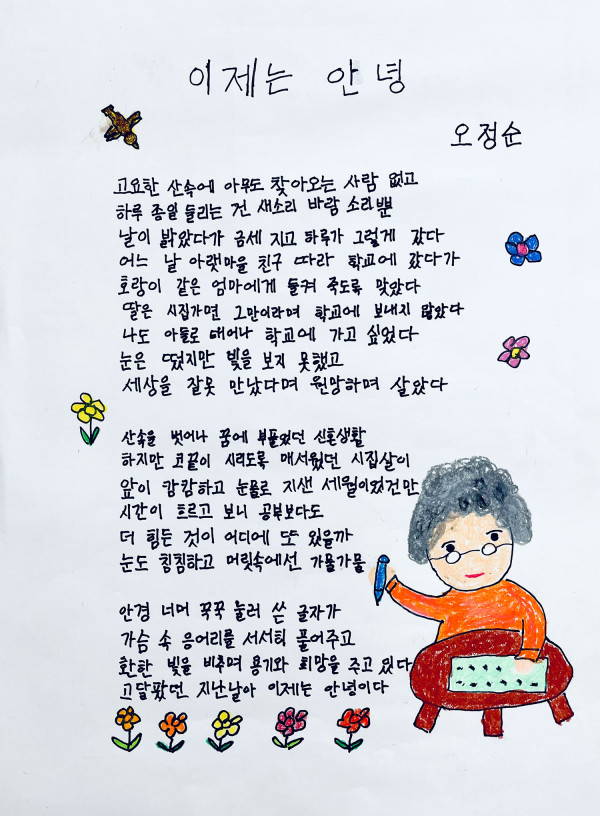 이제는 안녕
오정순
고요한 산속에 아무도 찾아오는 사람 없고
하루 종일 들리는 건 새소리 바람 소리뿐
날이 밝았다가 금세 지고 하루가 그렇게 갔다
어느 날 아랫마을 친구 따라 학교에 갔다가
호랑이 같은 엄마에게 들켜 죽도록 맞았다
딸은 시집가면 그만이라며 학교에 보내지 않았다
나도 아들로 태어나 학교에 가고 싶었다
눈은 떴지만 빛을 보지 못했고
세상을 잘못 만났다며 원망하며 살았다
산속을 벗어나 꿈에 부풀었던 신혼생활
하지만 코끝이 시리도록 매서웠던 시집살이
앞이 캄캄하고 눈물로 지샌 세월이었건만
시간이 흐르고 보니 공부보다도
더 힘든 것이 어디에 또 있을까
눈도 침침하고 머릿속에선 가물가물
안경 너머 꾹꾹 눌러 쓴 글자가
가슴 속 응어리를 서서히 풀어주고
환한 빛을 비추며 용기와 희망을 주고 있다
고달팠던 지난날아 이제는 안녕이다